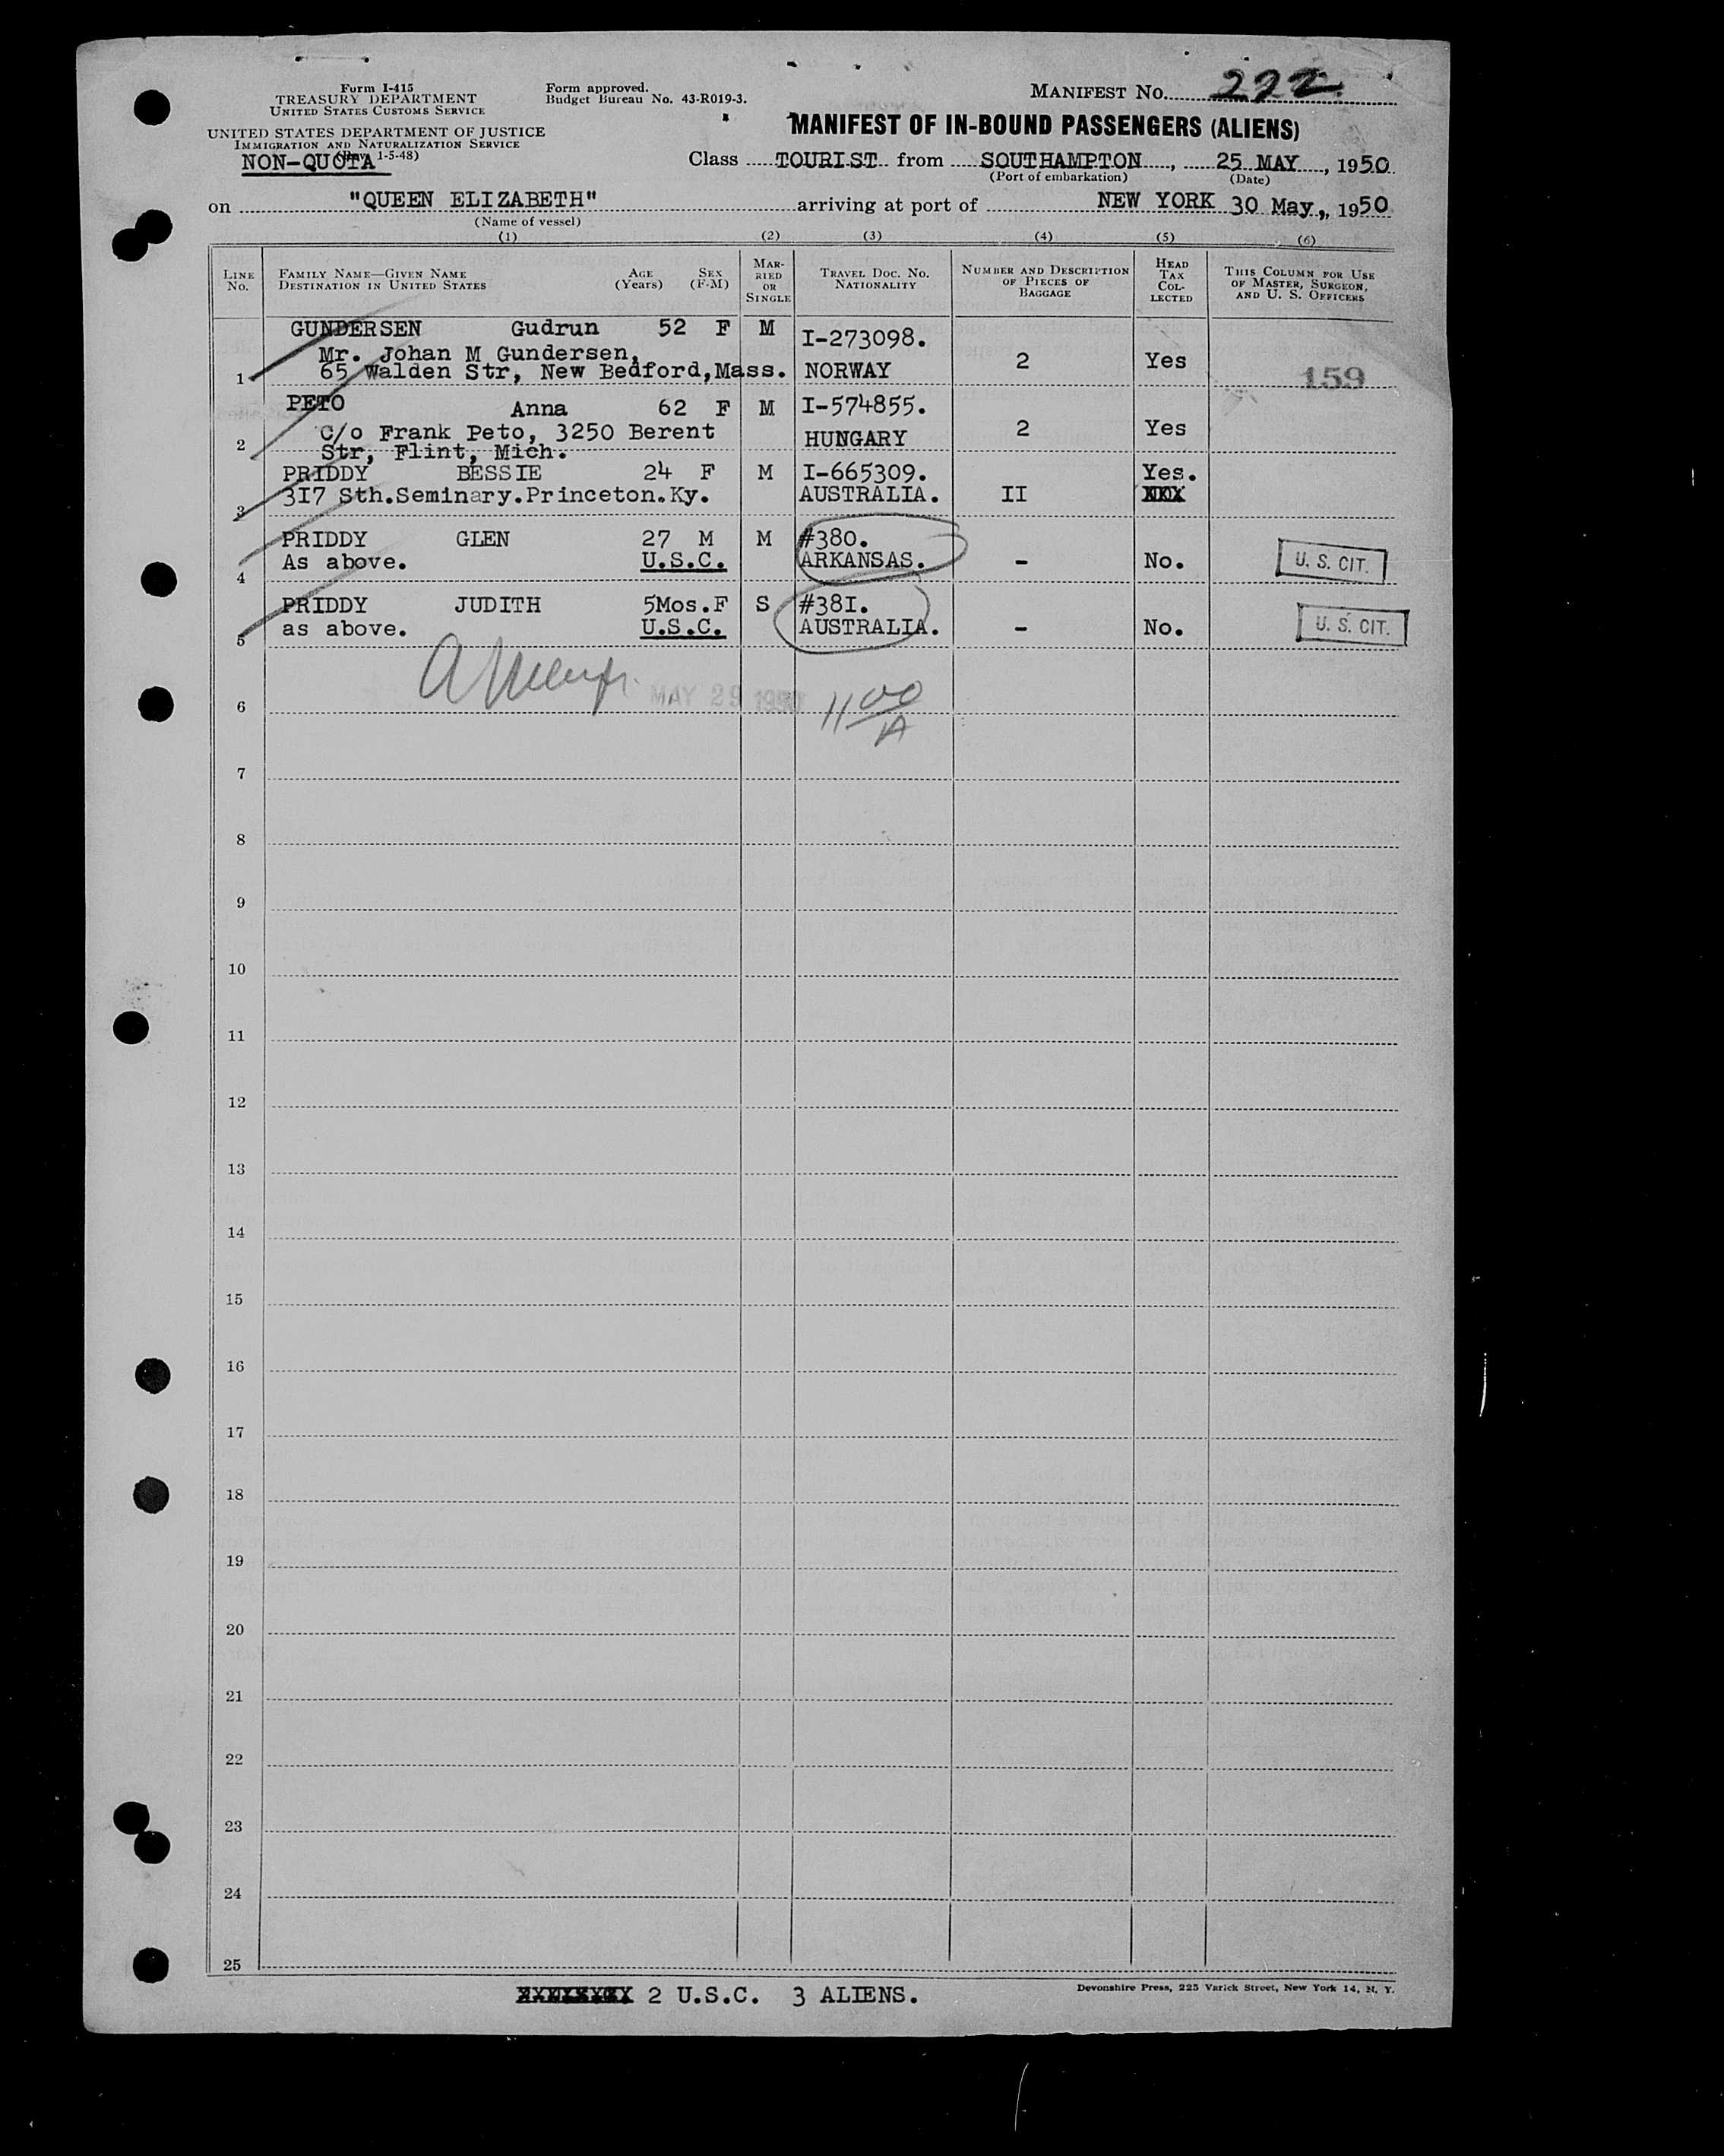 Form I-415
TREASURY DEPARTMENT
UNITED STATES CUSTOMS SERVICE
UNITED STATES DEPARTMENT OF JUSTICE
IMMIGRATION AND NATURALIZATION SERVICE
(Rev. 1-5-48)
NON-QUOTA
Form approved.
Budget Bureau No. 43-R019-3.
MANIFEST No. 222
MANIFEST OF IN-BOUND PASSENGERS (ALIENS)
Class TOURIST from SOUTHAMPTON, 25 MAY, 1950
(Port of embarkation) (Date)
on "QUEEN ELIZABETH" arriving at port of NEW YORK 30 May, 1950
(Name of vessel)
(1) (2) (3) (4) (5) (6)
LINE No. FAMILY NAME—GIVEN NAME DESTINATION IN UNITED STATES AGE (Years) SEX (F-M) MARRIED OR SINGLE TRAVEL DOC. No. NATIONALITY NUMBER AND DESCRIPTION OF PIECES OF BAGGAGE HEAD TAX COLLECTED THIS COLUMN FOR USE OF MASTER, SURGEON, AND U. S. OFFICERS
GUNDERSEN Gudrun 52 F M I-273098.
Mr. Johan M Gundersen,
1 65 Walden Str, New Bedford,Mass. NORWAY 2 Yes 159
PETO Anna 62 F M I-574855.
C/o Frank Peto, 3250 Berent HUNGARY 2 Yes
2 Str, Flint, Mich.
PRIDDY BESSIE 24 F M I-665309. Yes.
317 Sth.Seminary.Princeton.Ky. AUSTRALIA. II
3
PRIDDY GLEN 27 M M #380.
As above. U.S.C. ARKANSAS. - No. U. S. CIT.
4
PRIDDY JUDITH 5Mos.F S #381.
as above. U.S.C. AUSTRALIA. - No. U. S. CIT.
5
MAY 29 1950 11 00/A
6
7
8
9
10
11
12
13
14
15
16
17
18
19
20
21
22
23
24
25
2 U.S.C. 3 ALIENS.
Devonshire Press, 225 Varick Street, New York 14, N. Y.